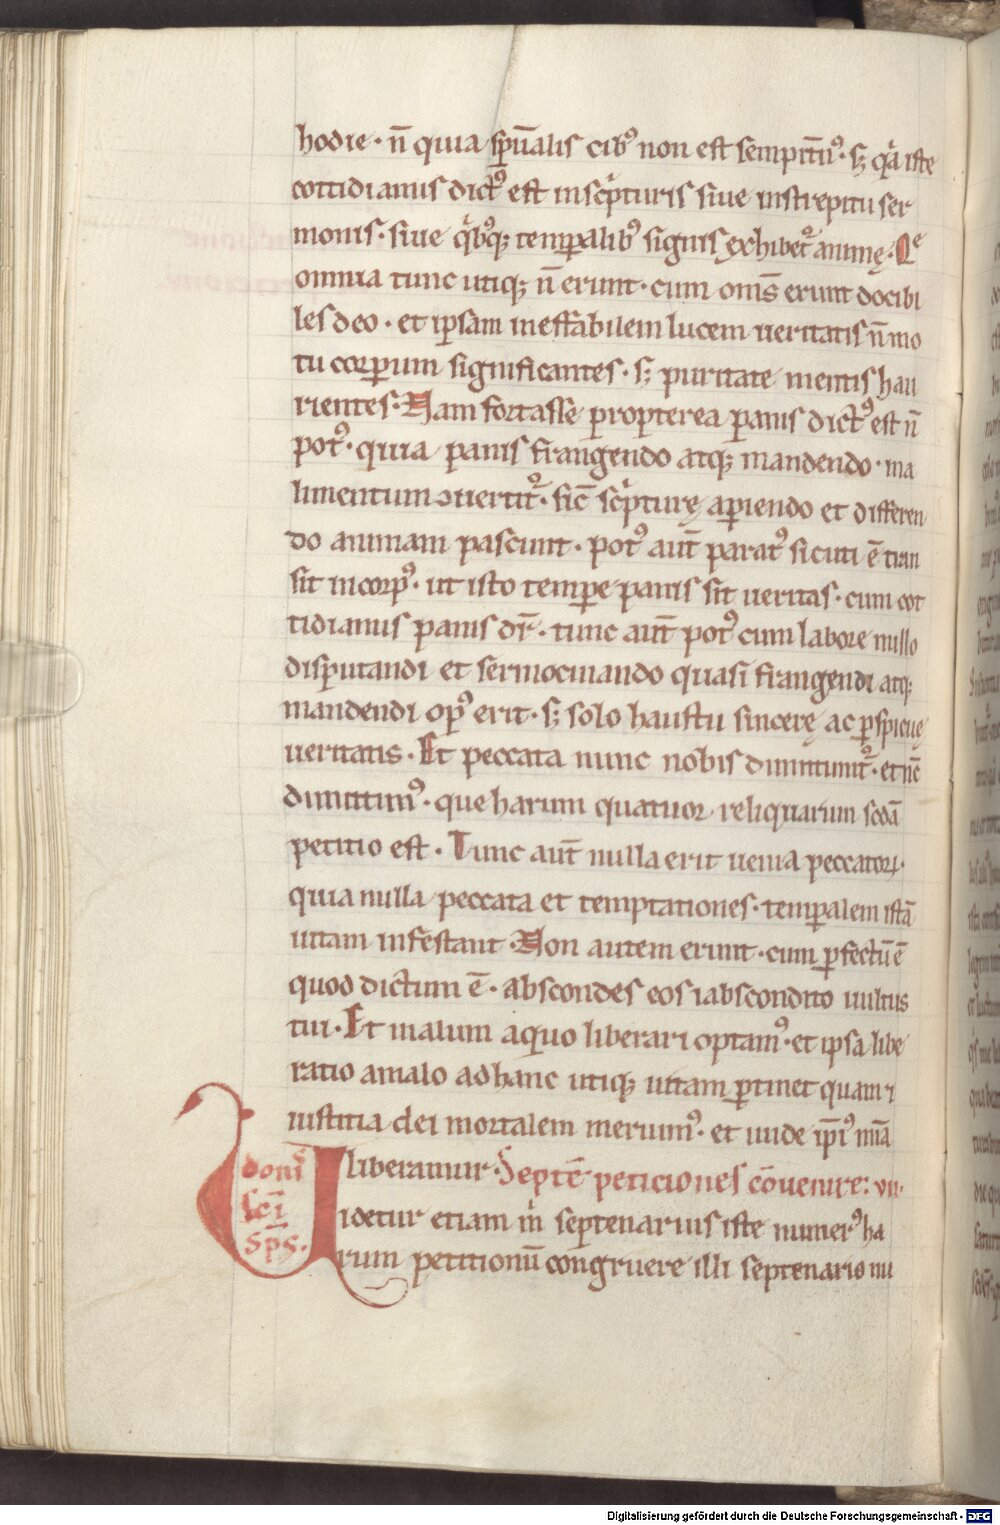 hodie · n̄ quia sp̄ualis cibꝰ non est sempit̄nꝰ · sꝫ qͥa iste
cottidianus dictꝰ est in scͥpturis siue in strepitu ser
monis · siue qͥbꝰqꝫ temꝑalibꝰ signis exhibetᷣ animę · Qᵉ
omnia tunc utiqꝫ n̄ erunt · cum om̄s erunt docibi
les deo · et ipsam ineffabilem lucem ueritatis n̄ mo
tu corporum significantes · sꝫ puritate mentis hau
rientes · Nam fortasse propterea panis dictꝰ est n̄
potꝰ · quia panis frangendo atqꝫ mandendo · in a
limentum ꝯuertitᷣ · sic̄ scͥpturę aperiendo et differen
do animam pascunt · potꝰ aut̄ paratꝰ sicuti ē tran
sit in corpꝰ · ut isto tempore panis sit ueritas · cum cot
tidianus panis dr̄ · tunc aut̄ potꝰ cum labore nullo
disputandi et sermocinando quasi frangendi atqꝫ
mandendi opꝰ erit · sꝫ solo haustu sincerę ac ꝑspicuę
ueritatis · Et peccata nunc nobis dimittuntᷣ · et nc̄
dimittimꝰ · que harum quatuor reliquarum scd̄a
petitio est · Tunc aut̄ nulla erit uenia peccatoꝝ ·
quia nulla peccata et temptationes · temꝑalem istā
uitam infestant · Non autem erunt · cum ꝑfectū ē
quod dictum ē · abscondes eos i abscondito uultus
tui · Et malum a quo liberari optamꝰ · et ipsa libe
ratio a malo ad hanc utiqꝫ uitam ꝑtinet quam ⁊
iustitia dei mortalem meruimꝰ · et unde ip̄iꝰ mīa
liberamur · Septē peticiones cōuenire: vii ·
doniˢ
sc̄i
sp̄s ·
Uidetur etiam mͥ septenarius iste numerꝰ ha
rum petitionū congruere illi septenario nu
Digitalisierung gefördert durch die Deutsche Forschungsgemeinschaft - DFG